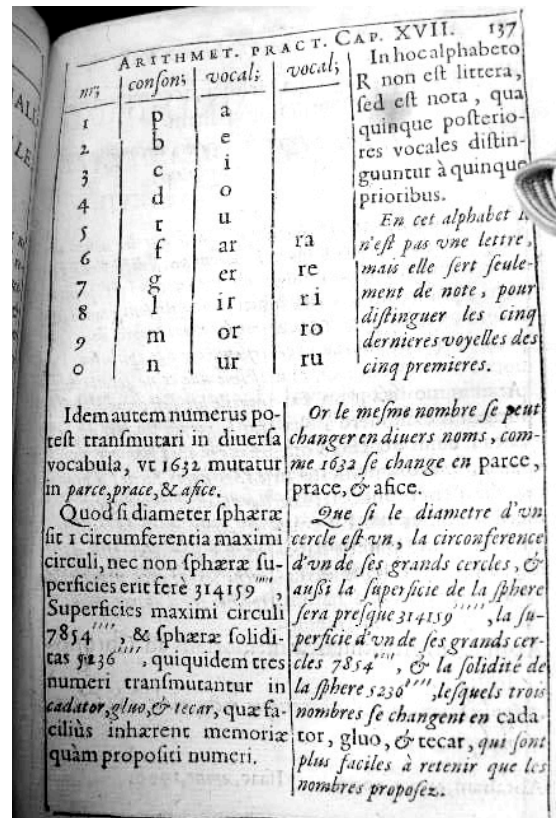 ARITHMET. PRACT. CAP. XVII. 137
nr; conſon; vocal; vocal;
1 p a
2 b e
3 c i
4 d o
5 t u
6 f ar ra
7 g er re
8 l ir ri
9 m or ro
0 n ur ru
In hoc alphabeto
R non eſt littera,
ſed eſt nota, qua
quinque poſterio-
res vocales diſtin-
guuntur à quinque
prioribus.
En cet alphabet
n'eſt pas vne lettre,
mais elle ſert ſeule-
ment de note, pour
diſtinguer les cinq
dernieres voyelles des
cinq premieres.
Idem autem numerus po-
teſt tranſmutari in diuerſa
vocabula, vt 1632 mutatur
in parce, prace, & afice.
Quod ſi diameter ſphæræ
ſit 1 circumferentia maximi
circuli, nec non ſphæræ ſu-
perficies erit ferè 314159''''',
Superficies maximi circuli
7854'''', & ſphæræ ſolidi-
tas 5236'''', quiquidem tres
numeri tranſmutantur in
cadator, gluo, & tecar, quæ fa-
ciliùs inhærent memoriæ
quàm propoſiti numeri.
Or le meſme nombre ſe peut
changer en diuers noms, com-
me 1632 ſe change en parce,
prace, & afice.
Que ſi le diametre d'vn
cercle eſt vn, la circonference
d'vn de ſes grands cercles, &
auſſi la ſuperficie de la ſphere
ſera preſque 314159''''', la ſu-
perficie d'vn de ſes grands cer-
cles 7854'''', & la ſolidité de
la ſphere 5236'''', leſquels trois
nombres ſe changent en cada-
tor, gluo, & tecar, qui ſont
plus faciles à retenir que les
nombres propoſez.